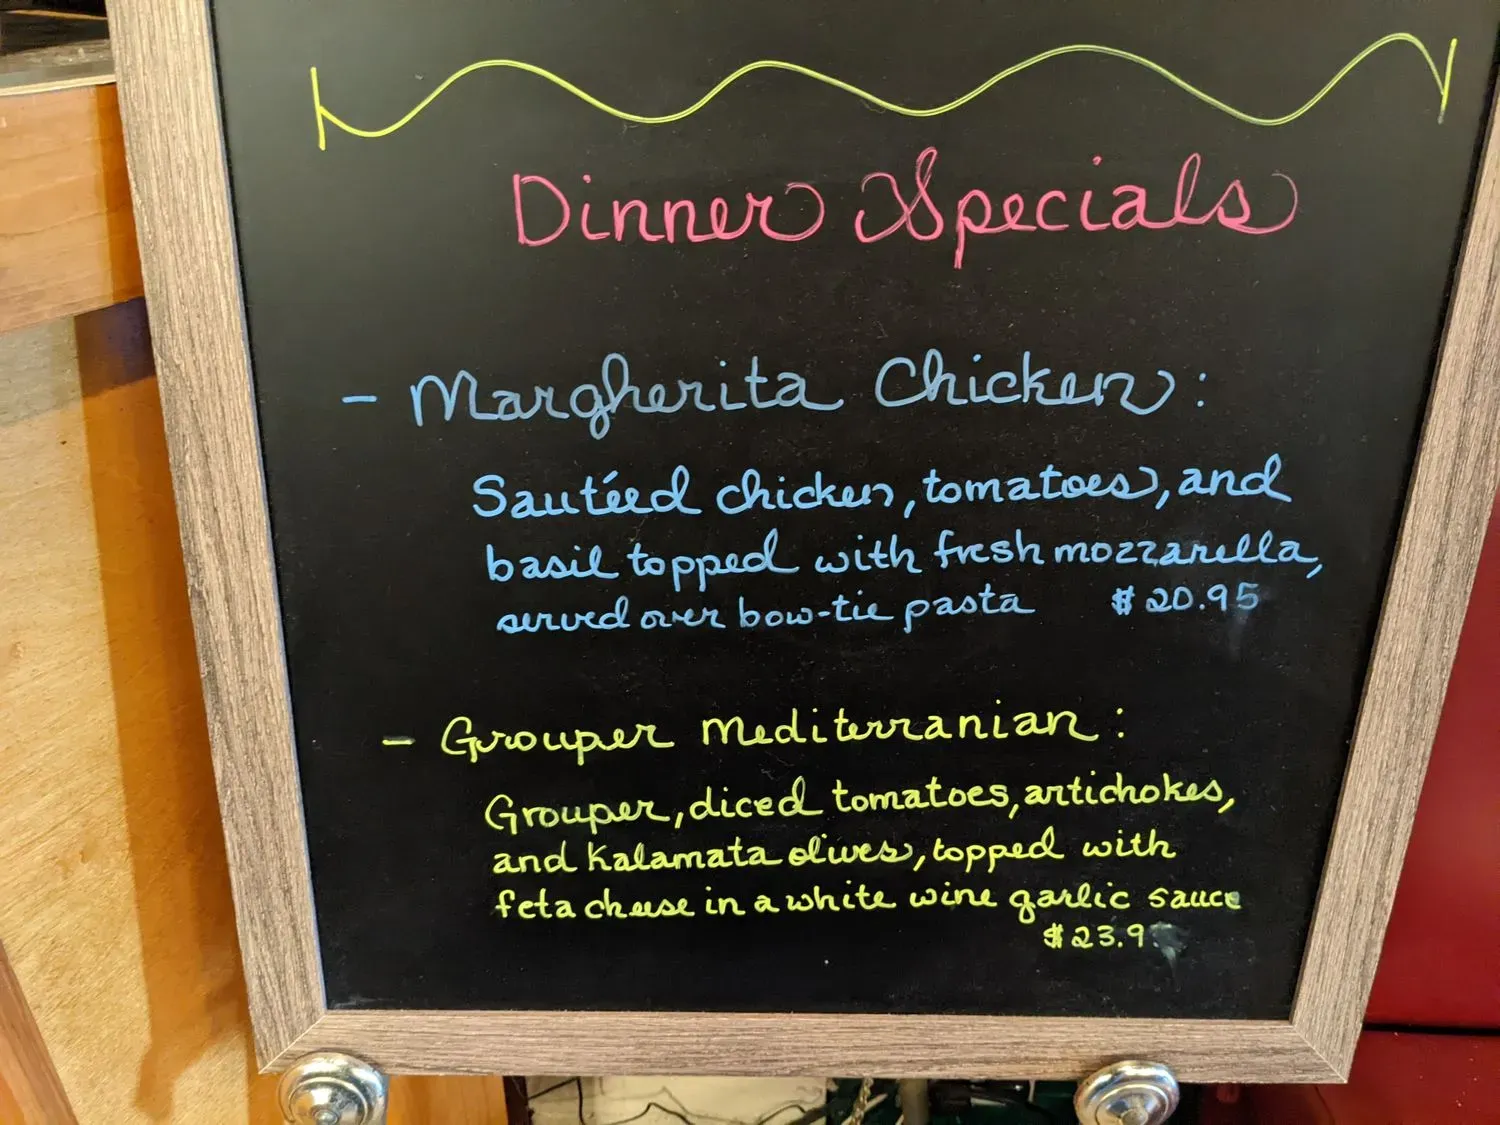 Dinner Specials
- Margherita Chicken:
Sautéed chicken, tomatoes, and
basil topped with fresh mozzarella,
served over bow-tie pasta $20.95
- Grouper Mediterranian:
Grouper, diced tomatoes, artichokes,
and Kalamata olives, topped with
feta cheese in a white wine garlic sauce